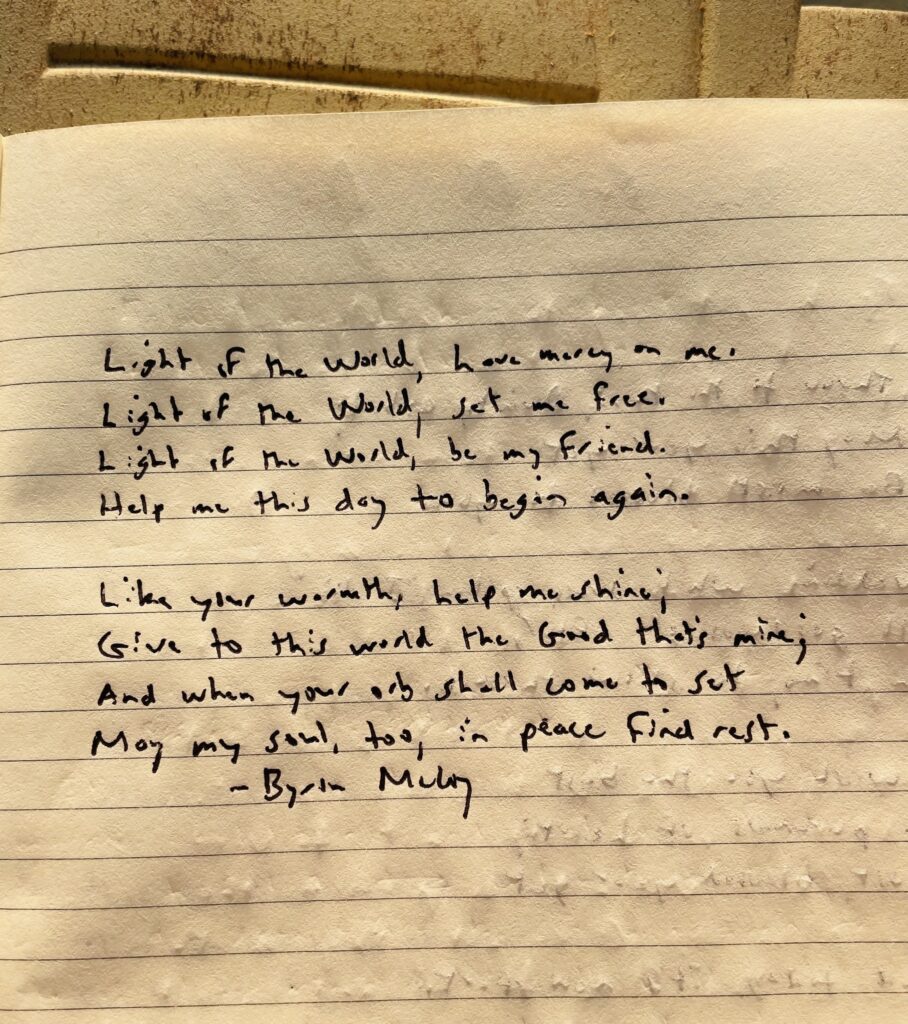 Light of the World, have mercy on me.
Light of the World, set me free.
Light of the World, be my friend.
Help me this day to begin again.
Like your warmth, help me shine;
Give to this world the Good that's mine;
And when your orb shall come to set
May my soul, too, in peace find rest.
- Byron